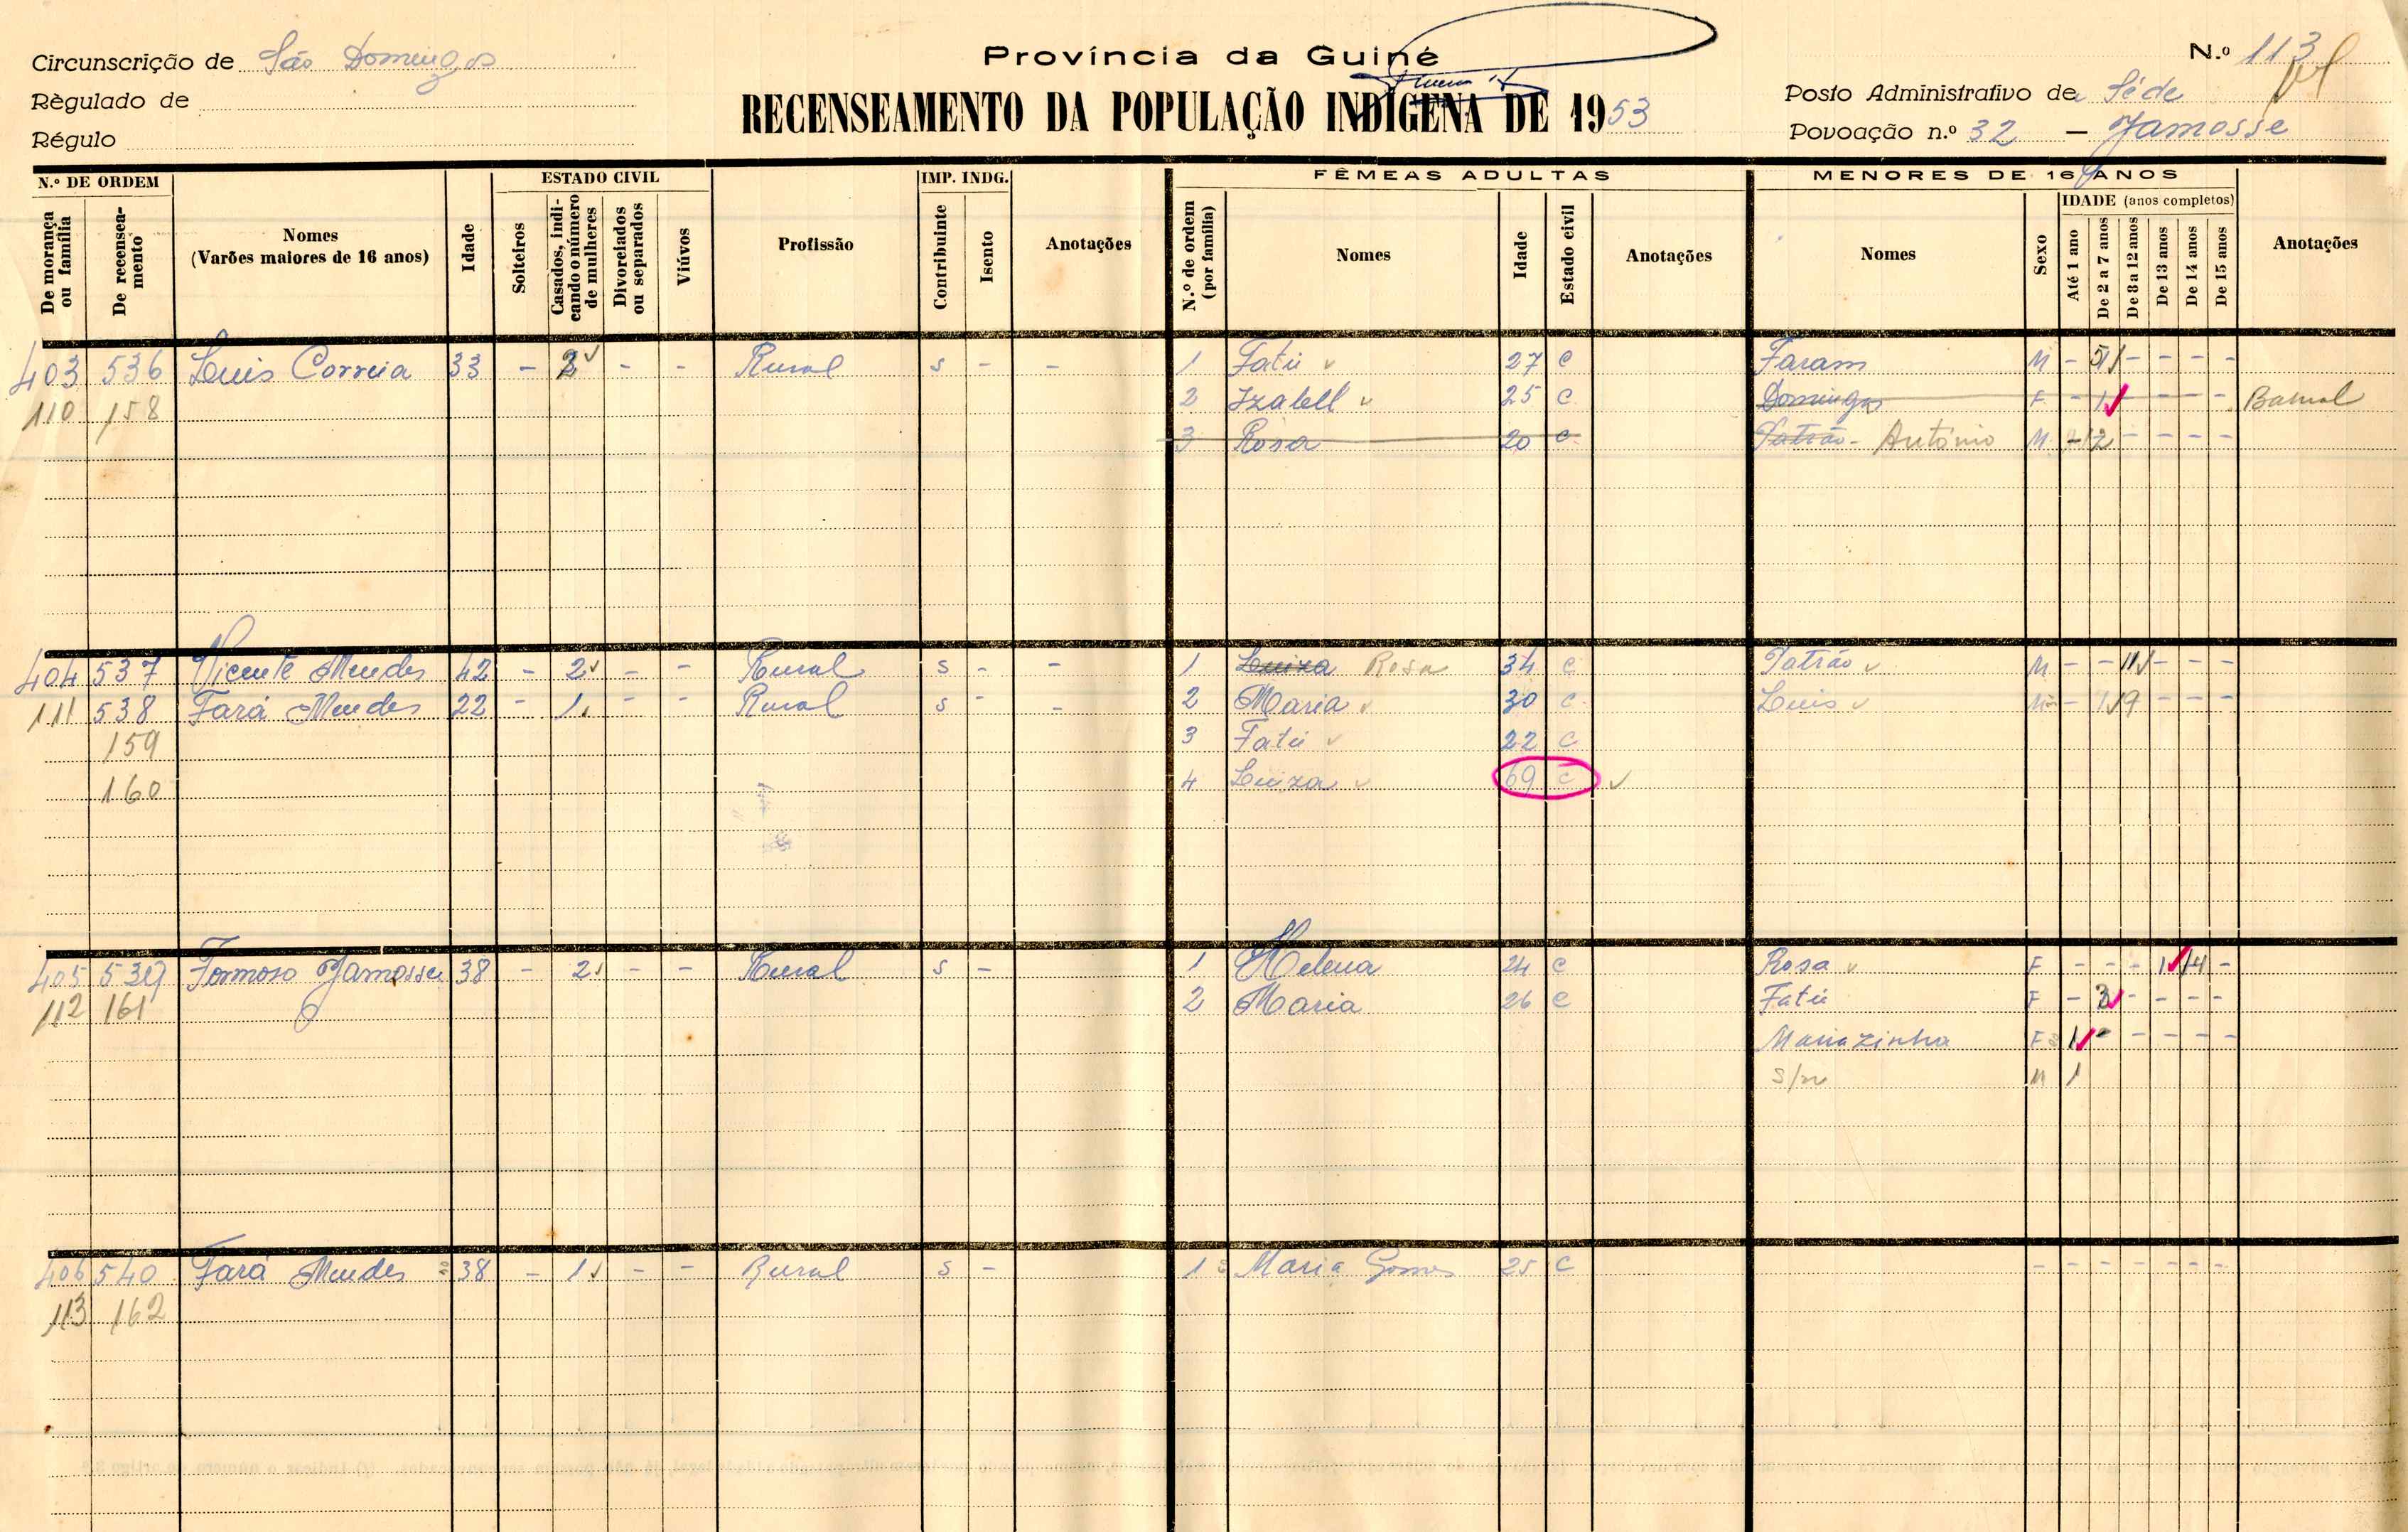 Circunscrição de São Domingos
Règulado de
Régulo
Província da Guiné
RECENSEAMENTO DA POPULAÇÃO INDÍGENA DE 1953
N.º 113
Posto Administrativo de Séde
Povoação n.º 32 — Jamosse
N.º DE ORDEM
De morança ou família
De recenseamento
Nomes
(Varões maiores de 16 anos)
Idade
ESTADO CIVIL
Solteiros
Casados, indicando o número de mulheres
Divorciados ou separados
Viúvos
Profissão
IMP. INDG.
Contribuinte
Isento
Anotações
FÊMEAS ADULTAS
N.º de ordem (por família)
Nomes
Idade
Estado civil
Anotações
MENORES DE 16 ANOS
Nomes
Sexo
IDADE (anos completos)
Até 1 ano
De 2 a 7 anos
De 8 a 12 anos
De 13 anos
De 14 anos
De 15 anos
Anotações
403 536 Luis Correia 33 - 2 - - Rural s - - 1 Fatú 27 c Faram M - 5 - - - -
110 158 2 Izabell 25 c Domingas F - 1 - - - -
3 Rosa 20 c Patrão - António M - 2 - - - -
404 537 Vicente Mendes 42 - 2 - - Rural s - - 1 Luiza Rosa 34 c Patrão M - - 11 - - -
111 538 Fará Mendes 22 - 1 - - Rural s - - 2 Maria 30 c Luis M - 9 - - -
159 3 Fatú 22 c
160 4 Luiza 69 c
405 539 Formoso Jamosse 38 - 2 - - Rural s - 1 Helena 24 c Rosa F - - - 1 14 -
112 161 2 Maria 26 c Fatú F - 3 - - - -
Mariazinha F 1 - - - - -
s/n M 1
406 540 Fará Mendes 38 - 1 - - Rural s - 1 Maria Gomes 25 c - - - - - - -
113 162